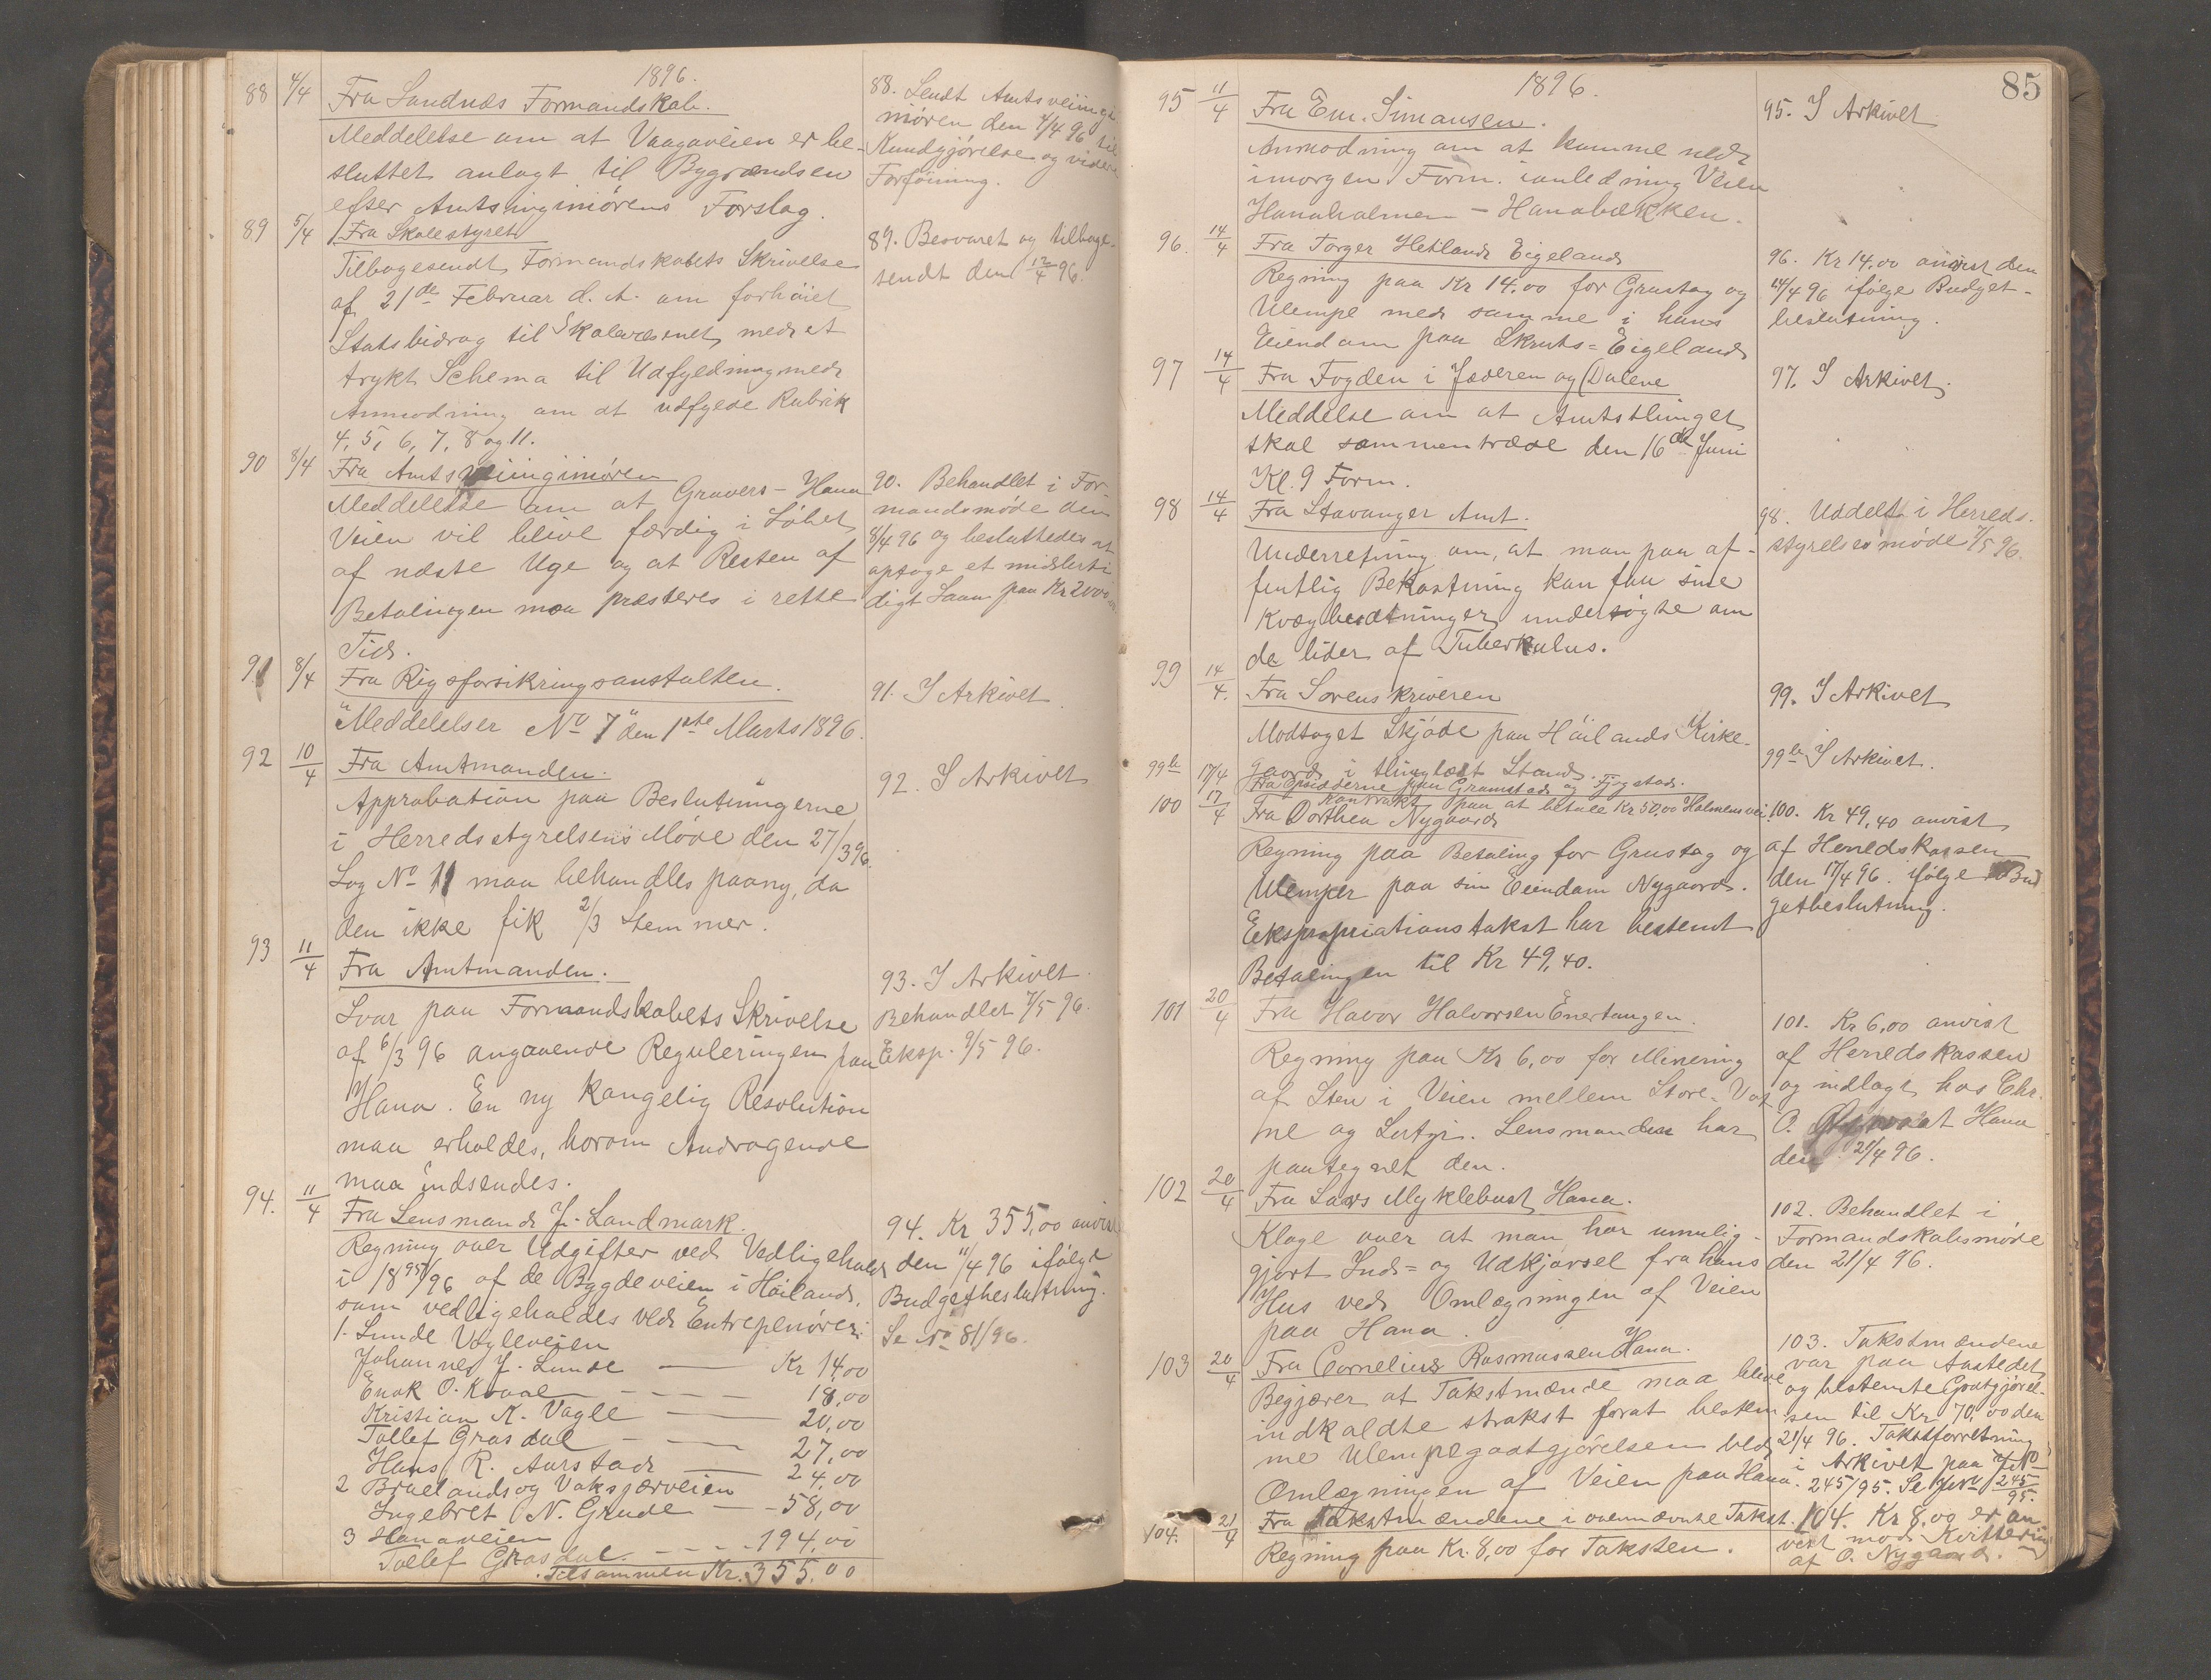 1896.
88 4/4 Fra Sandnæs Formandskab.
Meddelelse om at Vaagaveien er be-
sluttet anlagt til Bygrændsen
efter Amtsingeniørens Forslag.
88. Sendt Amtsveiinge-
niøren den 4/4 96 til
Kundgjørelse og videre
Forføining.
89 5/4 Fra Skolestyret
Tilbagesendt Formandskabets Skrivelse
af 21de Februar d. A. om forhøiet
Statsbidrag til Skolevæsenet, med et
trykt Schema til Udfyldning med
Anmodning om at udfylde Rubrik
4, 5, 6, 7, 8 og 11.
89. Besvaret og tilbage-
sendt den 12/4 96.
90 8/4 Fra Amtsveiingeniøren
Meddelelse om at Gravers - Hana
Veien vil blive færdig i Løbet
af næste Uge og at Resten af
Betalingen maa præsteres i rette
Tid.
90. Behandlet i For-
mandsmøde den
8/4 96 og besluttedes at
optage et midlerti
digt Laan paa Kr 2000
91 8/4 Fra Rigsforsikringsanstalten.
"Meddelelser No 7" den 1ste Marts 1896.
91. I Arkivet.
92 10/4 Fra Amtmanden.
Approbation paa Beslutningerne
i Herredsstyrelsens Møde den 27/3 96.
Sag No 11 maa behandles paany, da
den ikke fik 2/3 Stemmer.
92. I Arkivet
93 11/4 Fra Amtmanden.
Svar paa Formandskabets Skrivelse
af 6/3 96 angaaende Reguleringen paa
Hana. En ny Kongelig Resolution
maa erholdes, hvorom Andragende
maa indsendes.
93. I Arkivet.
Behandlet 7/5 96.
Eksp. 9/5 96.
94. 11/4 Fra Lensmand J. Landmark.
Regning over Udgifter ved Vedligehold
i 1895/96 af de Bygdeveien i Høiland,
som vedligeholdes ved Entrepenører:
1. Lunde Vagleveien
Johannes J. Lunde — Kr 14,00
Enok O. Kvaal - - - - 18,00
Kristian K. Vagle — 20,00
Tollef Grasdal - — 27,00
Hans R. Aurstad — 24,00
2 Brueland og Vatsjærveien
Ingebret N. Grude — - 58,00
3 Hanaveien
Tollef Grasdal. - - - - 194,00
Tilsammen Kr. 355,00
94. Kr 355,00 anvist
den 11/4 96 ifølge
Budgetbeslutning.
Se No 81/96.
85
1896.
95 11/4 Fra Em. Simonsen.
Anmodning om at komme ned
imorgen Form. ianledning Veien
Hanaholmen - Hanabækken.
95. I Arkivet
96. 14/4 Fra Torger Hetland Eigeland
Regning paa Kr 14.00 for Grustag og
Ulempe med samme i hans
Eiendom paa Skruts=Eigeland
96. Kr 14.00 anvist den
14/4 96 ifølge Budget-
beslutning.
97 14/4 Fra Fogden i Jæderen og Dalene
Meddelse om at Amtsthinget
skal sammentræde den 16de Juni
Kl. 9 Form.
97. I Arkivet.
98 14/4 Fra Stavanger Amt.
Underretning om, at man paa of-
fentlig Bekostning kan faa sine
Kvægbesætninger undersøgte om
de lider af Tuberkulos.
98. Uddelt i Herreds-
styrelses møde 7/5 96.
99 14/4. Fra Sorenskriveren
Modtaget Skjøde paa Høilands Kirke-
gaard i thinglæst Stand.
99. I Arkivet
99b 17/4 Fra Opsidderne paa Gramstad og Fjogstad.
Kontrakt paa at betale Kr 50,00 Holmens vei.
99b I Arkivet.
100 17/4 Fra Dorthea Nygaard
Regning paa Betaling for Grustag og
Ulemper paa sin Eiendom Nygaard.
Ekspropriationstakst har bestemt
Betalingen til Kr 49,40.
100. Kr 49,40 anvist
af Herredskassen
den 17/4 96. ifølge Bud
getbeslutning.
101 20/4 Fra Havor Halvorsen Enertangen.
Regning paa Kr 6,00 for Minering
af Sten i Veien mellem Store-Vat
ne og Lutsi. Lensmanden har
paategnet den.
101. Kr 6,00 anvist
af Herredskassen
og indlagt hos Chr.
O. Hana
den 21/4 96.
102 20/4 Fra Lars Myklebust Hana.
Klage over at man har umulig-
gjort Ind= og Udkjørsel fra hans
Hus ved Omlægningen af Veien
paa Hana.
102. Behandlet i
Formandskabsmøde
den 21/4 96.
103 20/4 Fra Cornelius Rasmussen Hana.
Begjærer at Takstmænde maa blive
indkaldte strakst forat bestem
me Ulempegodtgjørelsen ved
Omlægningen af Veien paa Hana.
103. Takstmændene
var paa Aastedet
og bestemte Godtgjørel-
sen til Kr 70,00 den
21/4 96. Takstforretning
i Arkivet paa No
245/95. Se 245/95.
104. 21/4 Fra Takstmændene i ovennævnte Takst.
Regning paa Kr. 8,00 for Taksten.
104. Kr 8,00 er an
vist mod Kvittering
af O. Nygaard.